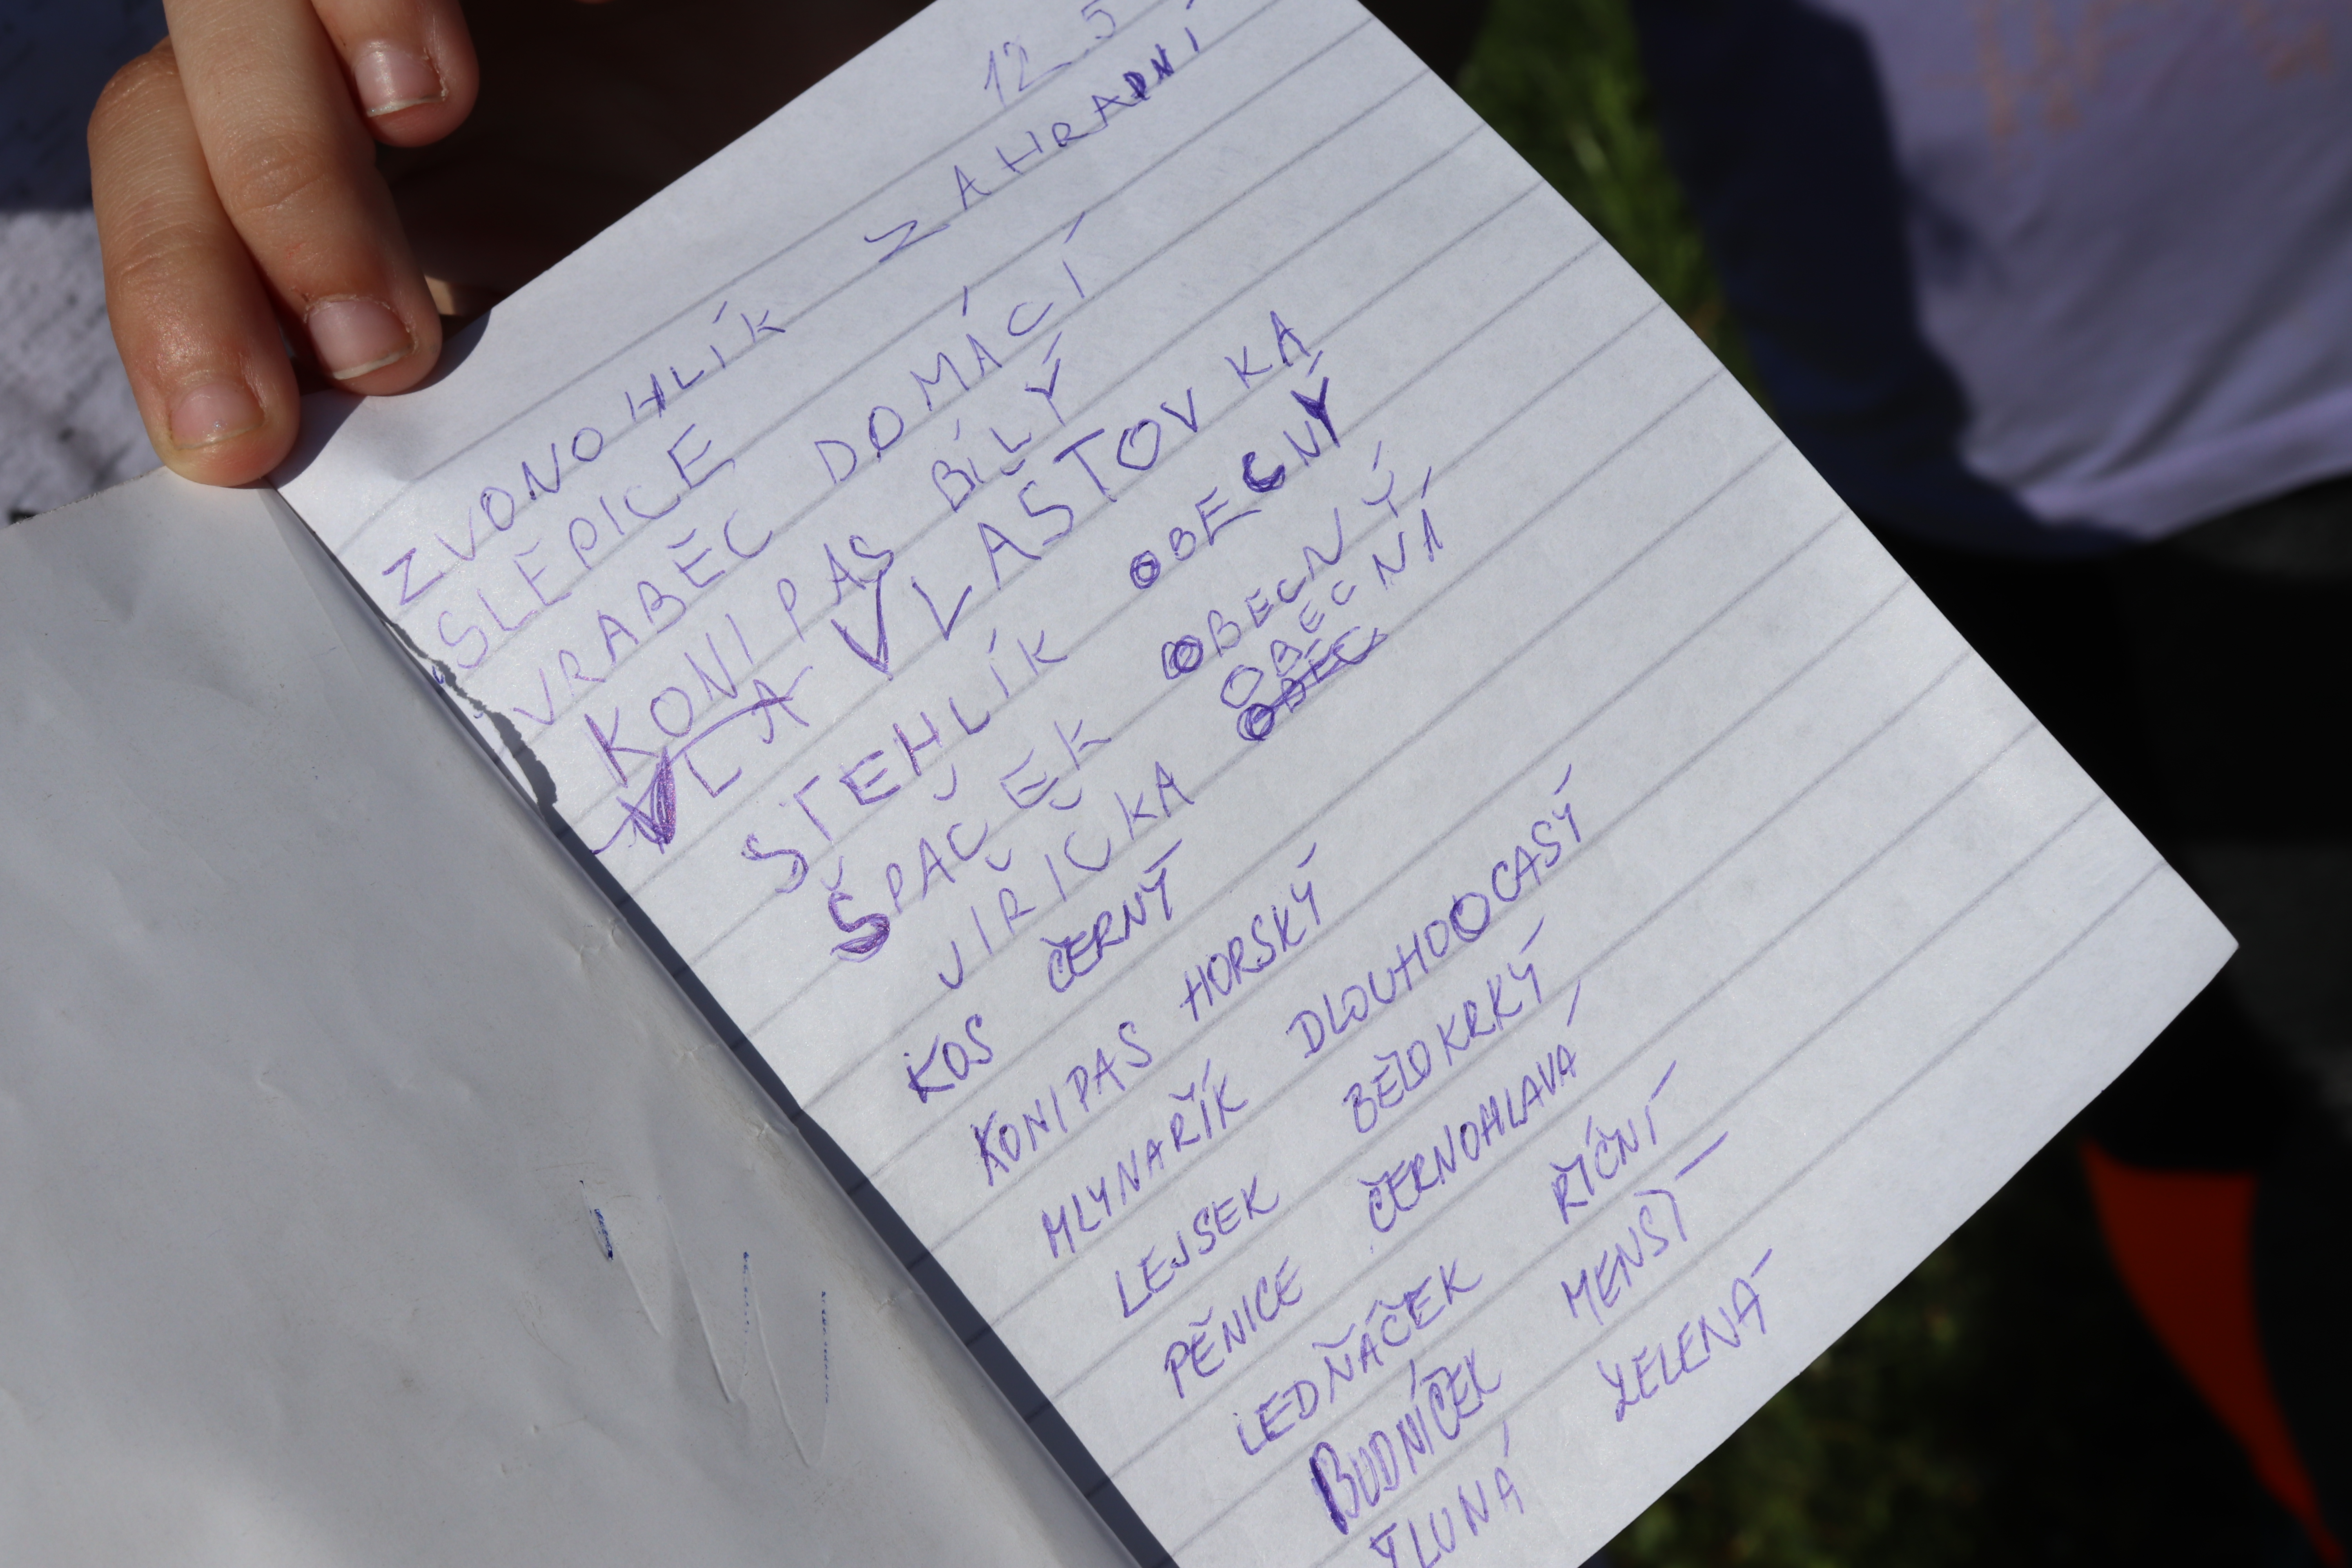 12 5
ZVONOHLÍK ZAHRADNÍ
SLEPICE
VRABEC DOMÁCÍ
KONIPAS BÍLÝ
VLA VLAŠTOVKA
STEHLÍK OBECNÝ
ŠPAČEK OBECNÝ
JIŘIČKA OBECNÁ
OBEC
KOS ČERNÝ
KONIPAS HORSKÝ
MLYNAŘÍK DLOUHOOCASÝ
LEJSEK BĚLOKRKÝ
PĚNICE ČERNOHLAVÁ
LEDŇÁČEK ŘÍČNÍ
BUDNÍČEK MENSÍ
ŽLUNÁ ZELENÁ